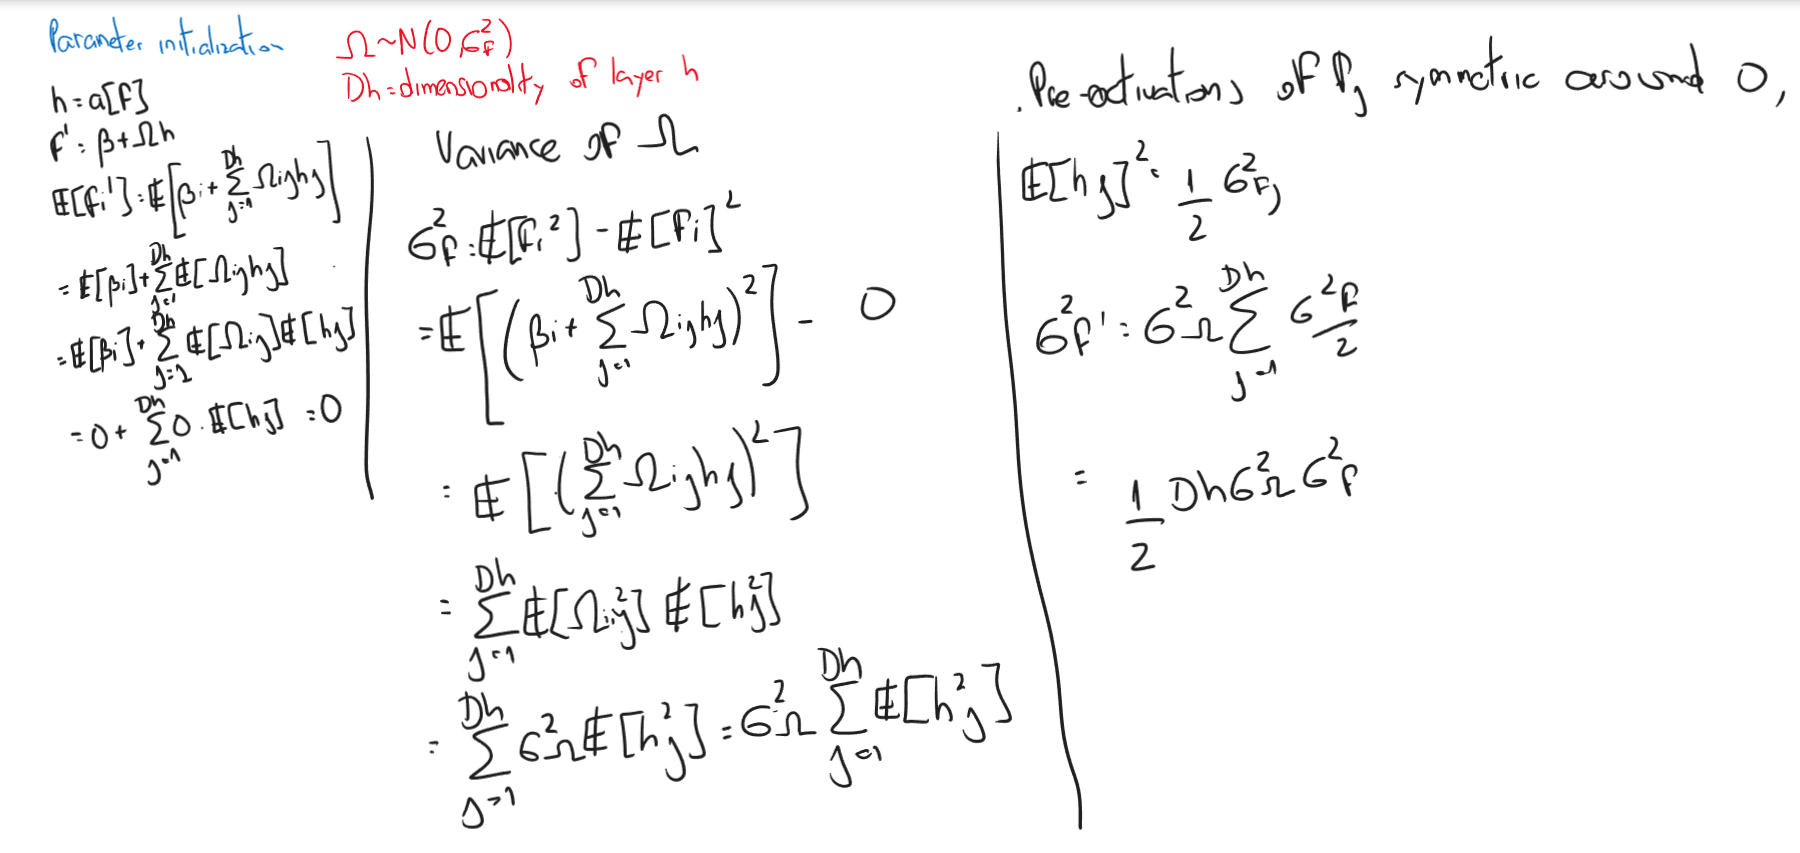 Parameter initialization
Ω~N(0 σ²_F)
Dh=dimensionality of layer h
h=a[f]
f'=β+Ωh
𝔼[fᵢ']=𝔼[βᵢ+∑_{j=1}^{Dh} Ωᵢⱼhⱼ]
=𝔼[βᵢ]+∑_{j=1}^{Dh}𝔼[Ωᵢⱼhⱼ]
=𝔼[βᵢ]+∑_{j=1}^{Dh}𝔼[Ωᵢⱼ]𝔼[hⱼ]
=0+∑_{j=1}^{Dh}0.𝔼[hⱼ]=0
Variance of Ω
σ²_f=𝔼[fᵢ²]-𝔼[fᵢ]²
=𝔼[(βᵢ+∑_{j=1}^{Dh}Ωᵢⱼhⱼ)²]-0
=𝔼[(∑_{j=1}^{Dh}Ωᵢⱼhⱼ)²]
=∑_{j=1}^{Dh}𝔼[Ωᵢⱼ²]𝔼[hⱼ²]
=∑_{j=1}^{Dh}σ²_Ω𝔼[hⱼ²]=σ²_Ω∑_{j=1}^{Dh}𝔼[hⱼ²]
.Pre-activations of fⱼ symmetric around 0,
𝔼[hⱼ]²=1/2 σ²_{fⱼ}
σ²_{f'}=σ²_Ω∑_{j=1}^{Dh} σ²_f/2
=1/2 Dhσ²_Ωσ²_f